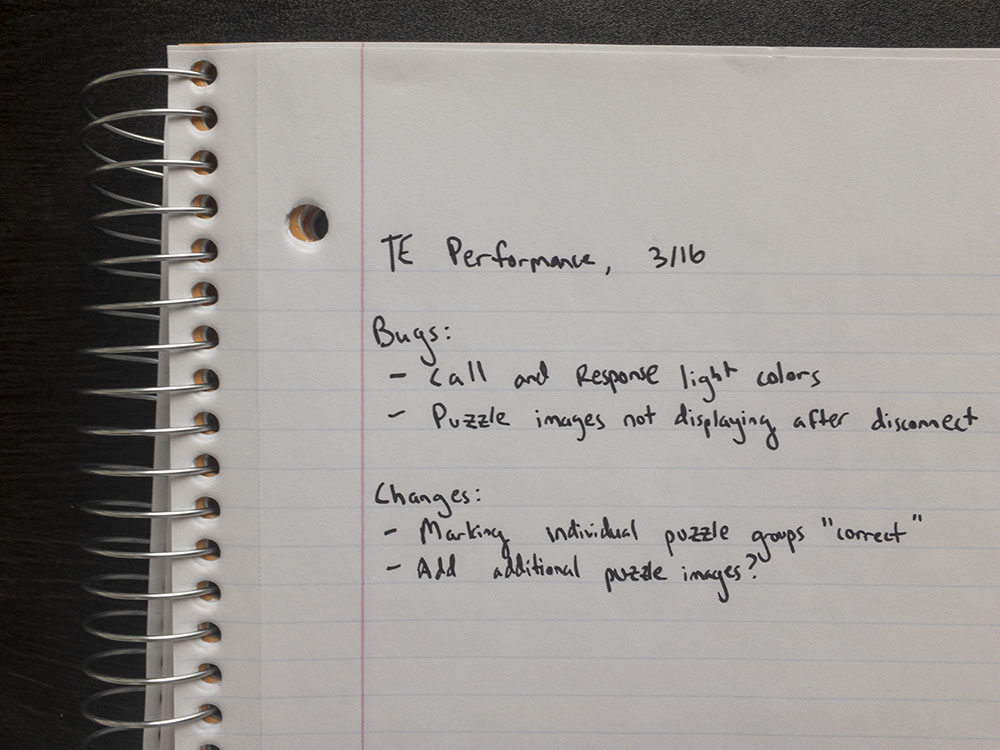 TE Performance, 3/16
Bugs:
- Call and Response light colors
- Puzzle images not displaying after disconnect
Changes:
- Marking individual puzzle groups "correct"
- Add additional puzzle images?